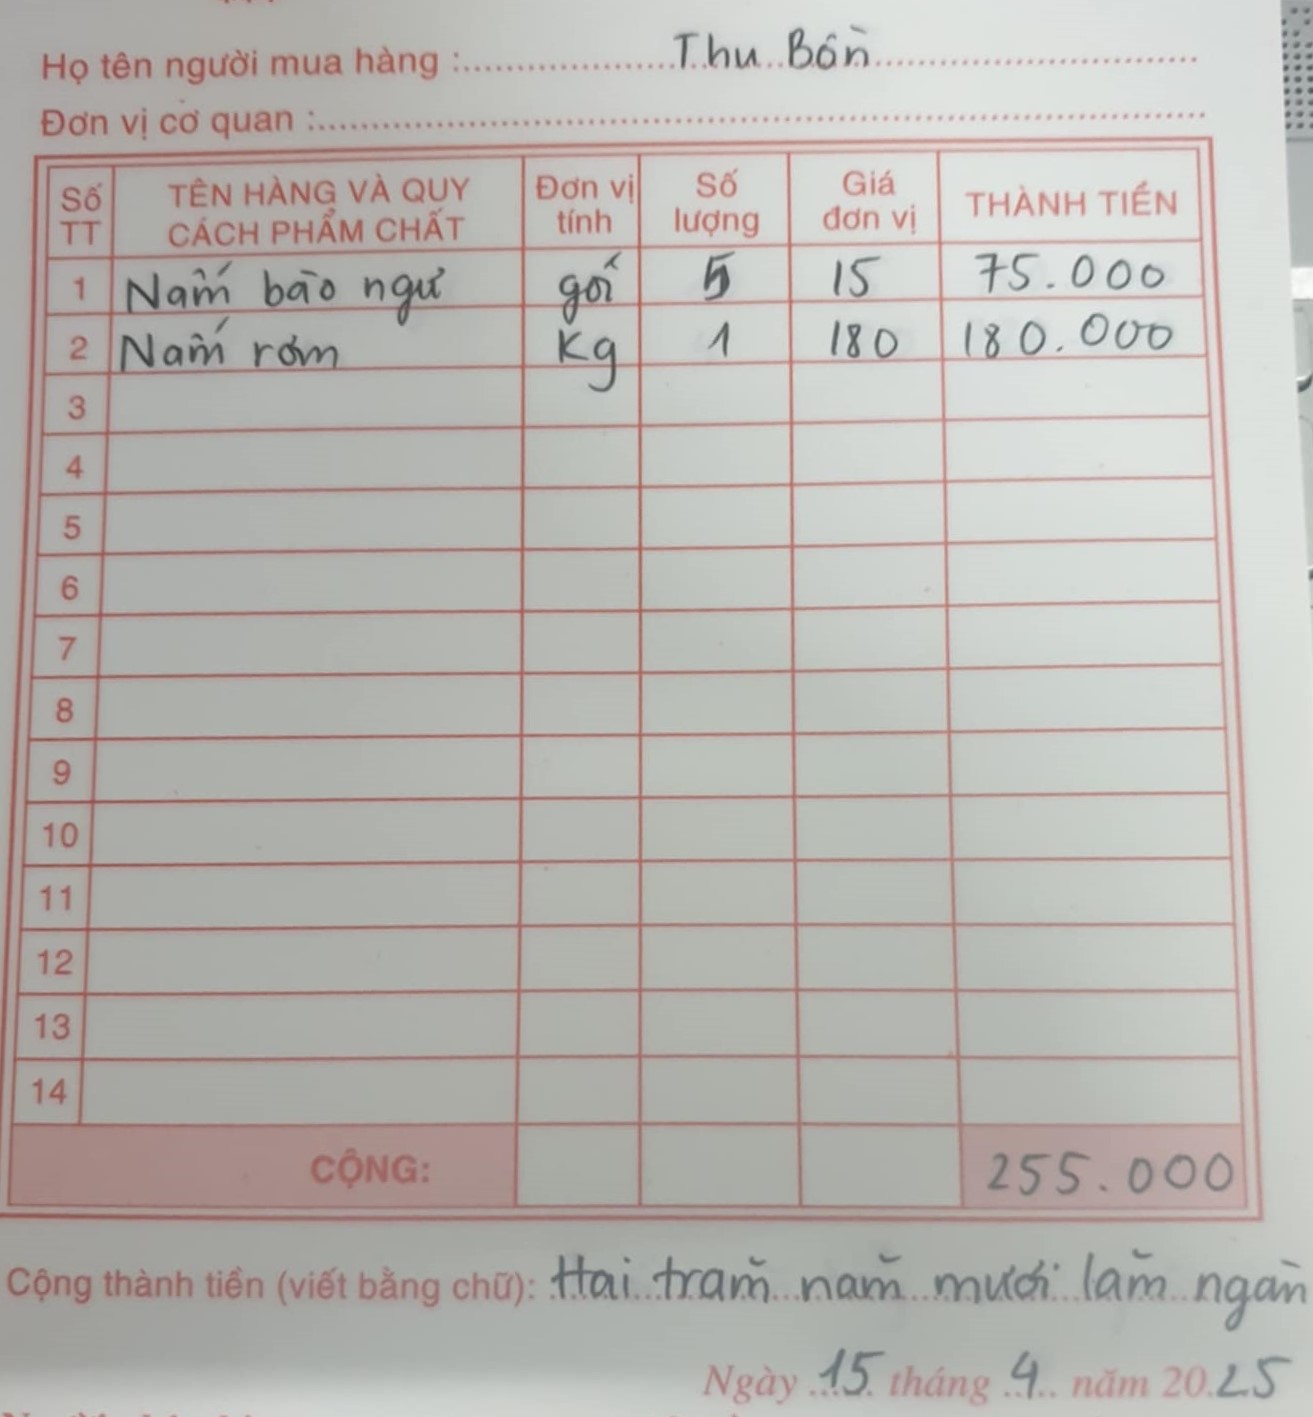 Họ tên người mua hàng : Thu Bồn
Đơn vị cơ quan :
Số TT TÊN HÀNG VÀ QUY CÁCH PHẨM CHẤT Đơn vị tính Số lượng Giá đơn vị THÀNH TIỀN
1 Nấm bào ngư gói 5 15 75.000
2 Nấm rơm Kg 1 180 180.000
3
4
5
6
7
8
9
10
11
12
13
14
CỘNG: 255.000
Cộng thành tiền (viết bằng chữ): Hai trăm năm mươi lăm ngàn
Ngày 15 tháng 4 năm 20.25